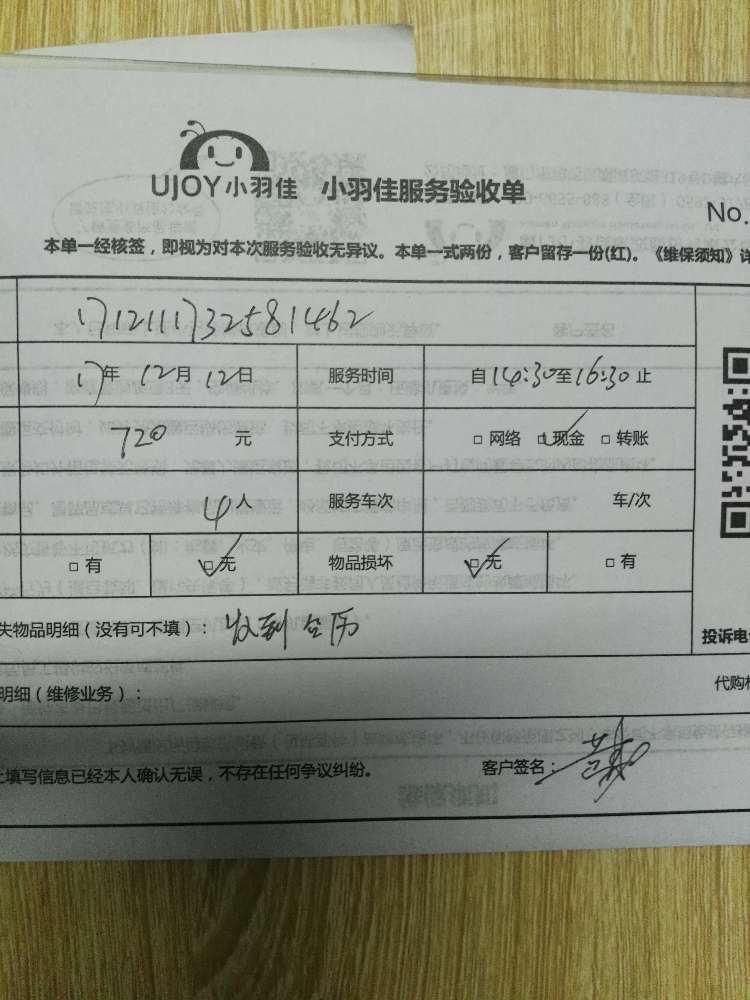 UJOY小羽佳 小羽佳服务验收单
No.
本单一经核签，即视为对本次服务验收无异议。本单一式两份，客户留存一份(红)。《维保须知》详
1712111732581462
17年 12月 12日 服务时间 自14:30至16:30止
720 元 支付方式 □ 网络 □ 现金 □ 转账
4人 服务车次 车/次
□ 有 □ 无 物品损坏 □ 无 □ 有
失物品明细（没有可不填）：收到
投诉电
明细（维修业务）：
代购
上填写信息已经本人确认无误，不存在任何争议纠纷。 客户签名：